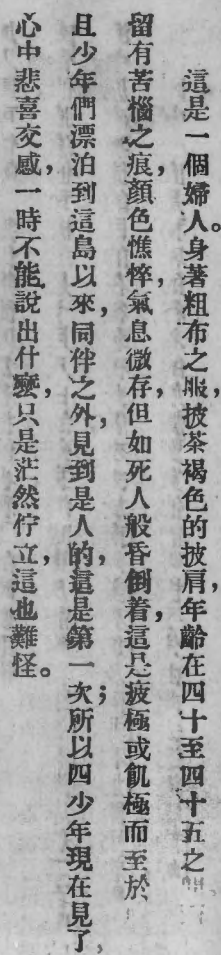 這是一個婦人。身著粗布之服，披茶褐色的披肩，年齡在四十至四十五之
留有苦惱之痕，顏色憔悴，氣息微存，但如死人般昏倒着，這是疲極或飢極而至於
且少年們漂泊到這島以來，同伴之外，見到是人的，這是第一次；所以四少年現在見了，
心中悲喜交感，一時不能說出什麼，只是茫然佇立，這也難怪。